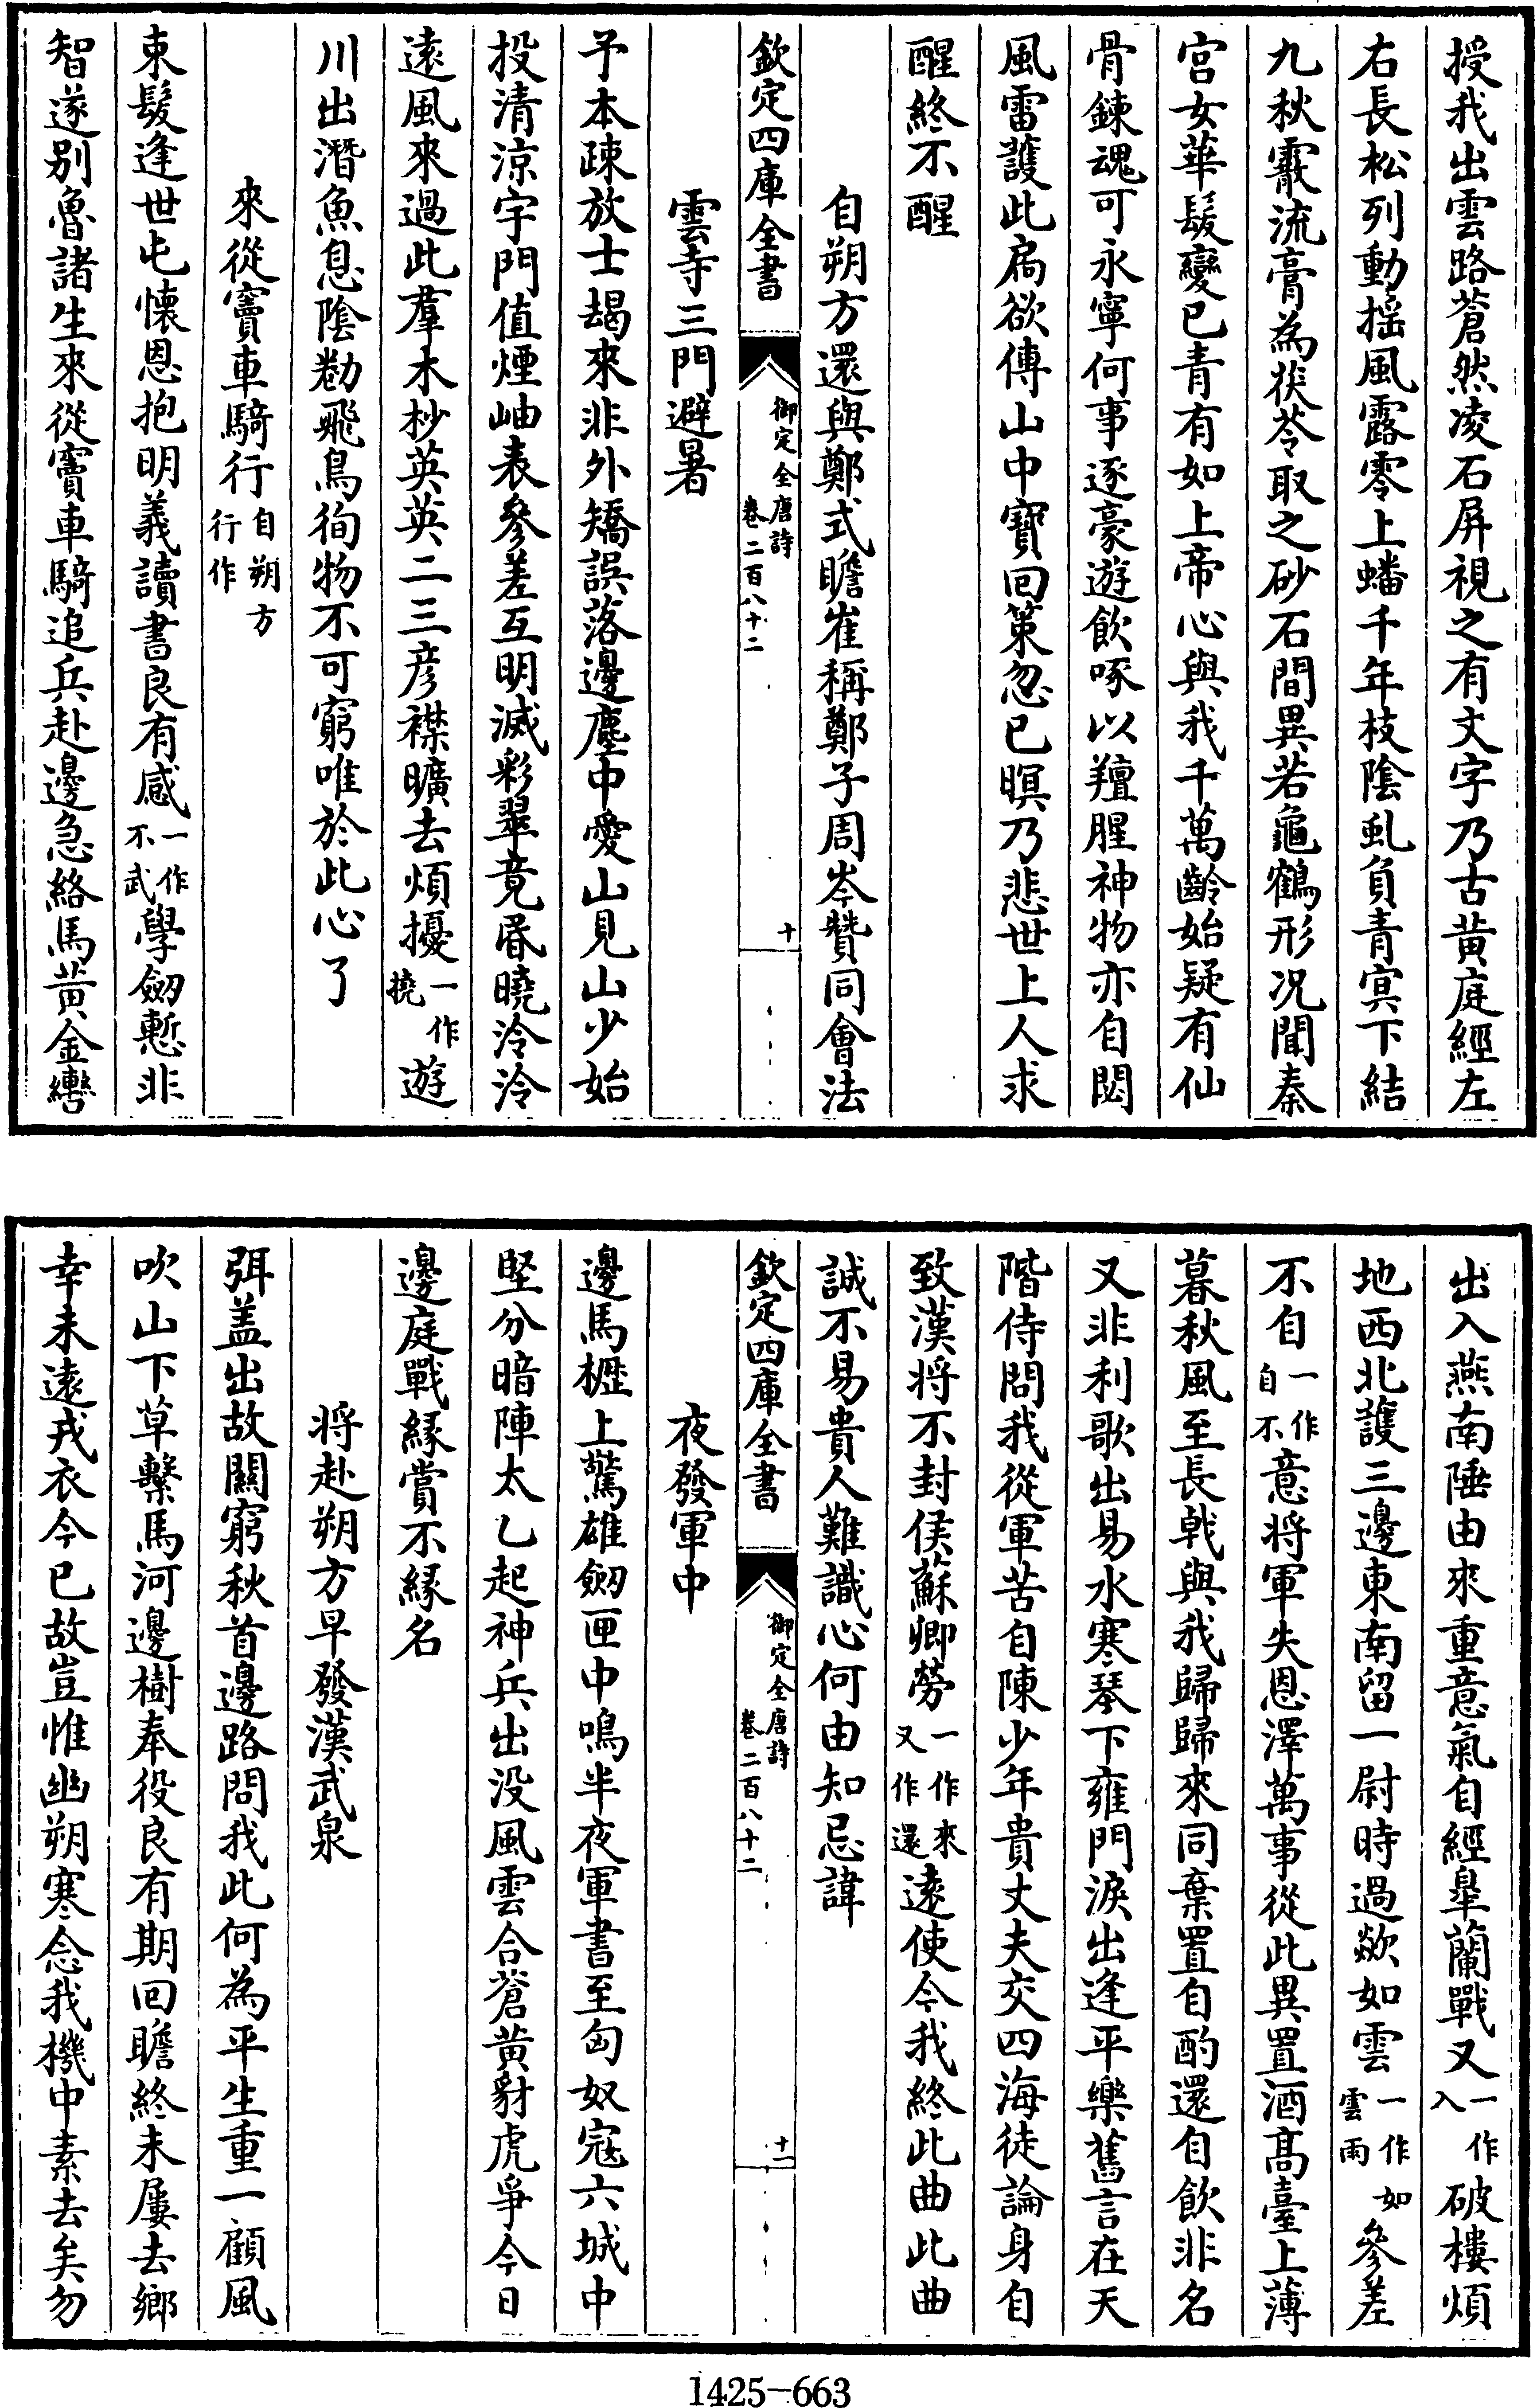 授我出雲路蒼然凌石屏視之有文字乃古黄庭經左
右長松列動揺風露零上蟠千年枝陰虬負青冥下結
九秋霰流膏為茯苓取之砂石間異若龜鶴形況聞秦
宫女華髮變已青有如上帝心與我千萬齡始疑有仙
骨鍊魂可永寧何事逐豪遊飲啄以羶腥神物亦自閟
風雷護此扃欲傳山中寶回策忽已暝乃悲世上人求
醒終不醒
自朔方還與鄭式瞻崔稱鄭子周岑贊同會法
欽定四庫全書 御定全唐詩 卷二百八十二 十
雲寺三門避暑
予本疎放士朅來非外矯誤落邊塵中愛山見山少始
投清涼宇門值煙岫表參差互明滅彩翠竟昏曉泠泠
遠風來過此羣木杪英英二三彦襟曠去煩擾一作撓遊
川出潛魚息陰勌飛鳥徇物不可窮唯於此心了
來從竇車騎行自朔方行作
束髮逢世屯懷恩抱明義讀書良有感一作不武學劒慙非
智遂别魯諸生來從竇車騎追兵赴邊急絡馬黄金轡
出入燕南陲由來重意氣自經臯蘭戰又一作入破樓煩
地西北護三邊東南留一尉時過欻如雲一作如雲雨參差
不自一作自不意将軍失恩澤萬事從此異置酒髙臺上薄
暮秋風至長戟與我歸歸來同棄置自酌還自飲非名
又非利歌出易水寒琴下雍門淚出逢平樂舊言在天
階侍問我從軍苦自陳少年貴丈夫交四海徒論身自
致漢将不封侯蘇卿勞一作來又作還遠使今我終此曲此曲
誠不易貴人難識心何由知忌諱
欽定四庫全書 御定全唐詩 卷二百八十二 十一
夜發軍中
邊馬櫪上驚雄劒匣中鳴半夜軍書至匈奴寇六城中
堅分暗陣太乙起神兵出没風雲合蒼黄豺虎爭今日
邊庭戰緣賞不緣名
将赴朔方早發漢武泉
弭盖出故關窮秋首邊路問我此何為平生重一顧風
吹山下草繫馬河邊樹奉役良有期回瞻終未屢去鄉
幸未遠戎衣今已故豈惟幽朔寒念我機中素去矣勿
1425-663